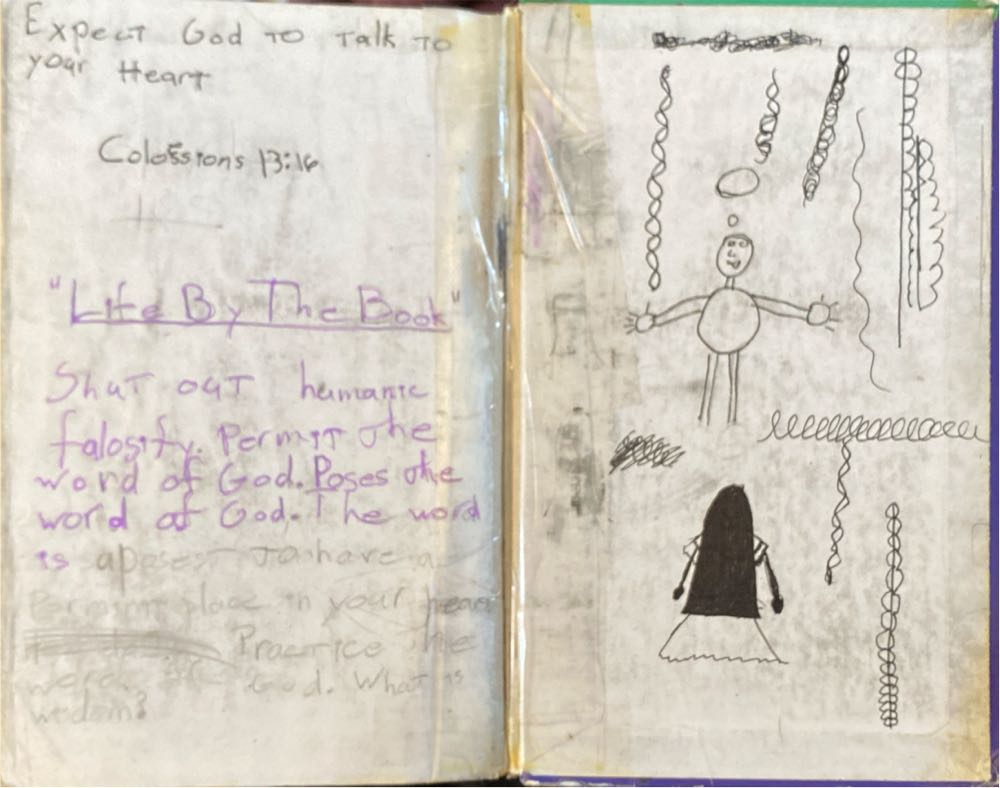 Expect God To Talk To
your Heart
Colossions 13:16
"Life By The Book"
Shut out humanic
falosity. Permit the
word of God. Poses the
word of God. The word
is aposest To have a
Permint place in your heart
Practice the
word of God. What is
wisdom?